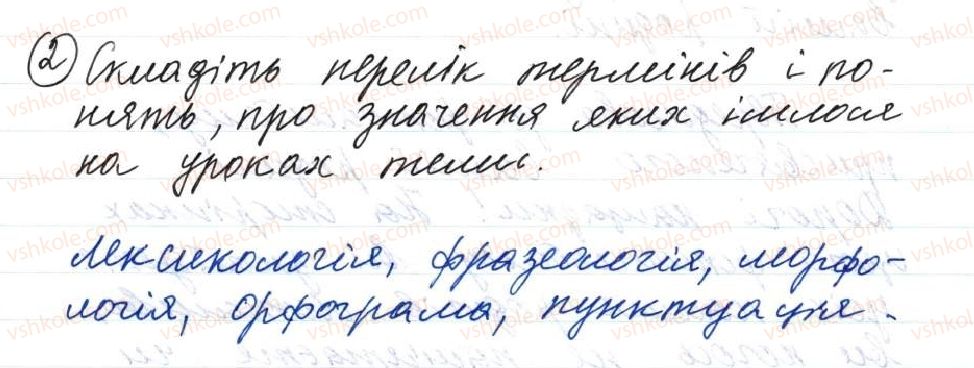 ② Складіть перелік термінів і по-
нять, про значення яких ішлося
на уроках теми.
Лексикологія, фразеологія, морфо-
логія, орфограма, пунктуація.